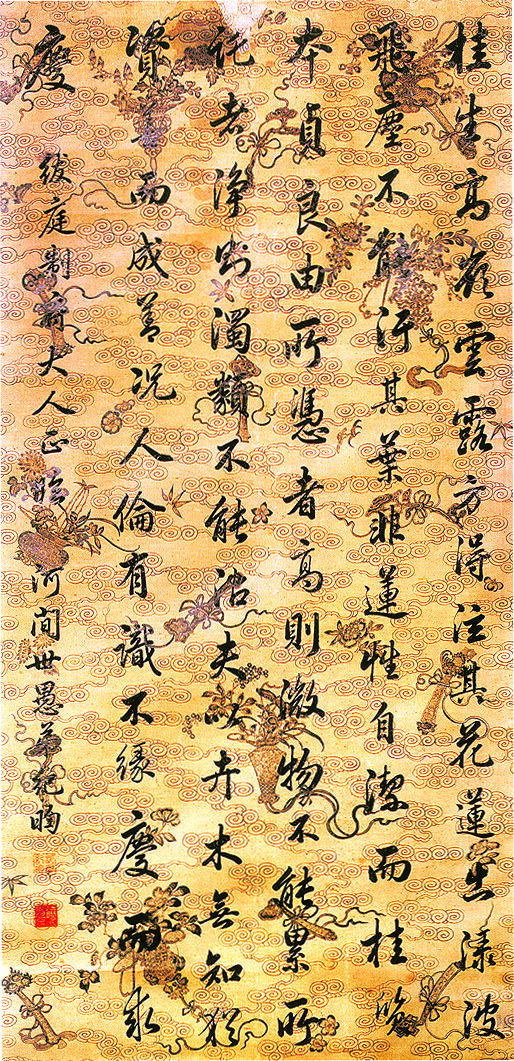 桂生高嶺雲露方得注其花蓮出淥波
飛塵不能汙其葉非蓮性自潔而桂質
本貞良由所憑者高則微物不能累所
託者淨則濁類不能沾夫以卉木無知猶
資善而成善况人倫有識不緣慶而求
慶
庭制府大人正臨 河間世愚弟紀昀